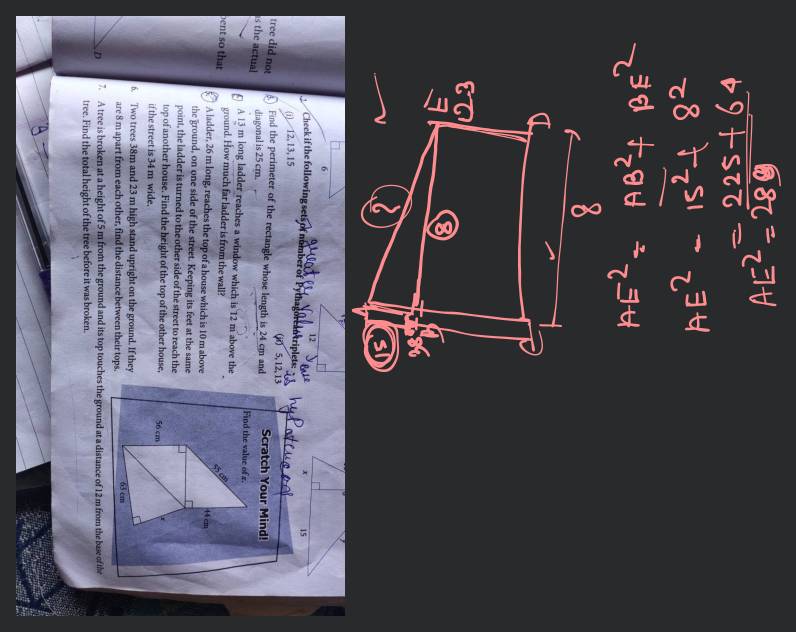 6
12
x
15
Check if the following sets of number of Pythagorean triplets:
(i) 12,13,15
(ii) 5,12,13
greater value
is hypotenuse
Find the perimeter of the rectangle whose length is 24 cm and
diagonal is 25 cm.
A 13 m long ladder reaches a window which is 12 m above the
ground. How much far ladder is from the wall?
A ladder, 26 m long, reaches the top of a house which is 10 m above
the ground, on one side of the street. Keeping its feet at the same
point, the ladder is turned to the other side of the street to reach the
top of another house. Find the height of the top of the other house,
if the street is 34 m wide.
6. Two trees 38m and 23 m high stand upright on the ground. If they
are 8 m apart from each other, find the distance between their tops.
7. A tree is broken at a height of 5 m from the ground and its top touches the ground at a distance of 12 m from the base of the
tree. Find the total height of the tree before it was broken.
Scratch Your Mind!
Find the value of x.
55 cm
44 cm
56 cm
x
63 cm
tree did not
s the actual
ent so that
D
E
23
D
8
?
8
15
B
38
C
AE² = AB² + BE²
AE² = 15² + 8²
= 225 + 64
AE² = 289